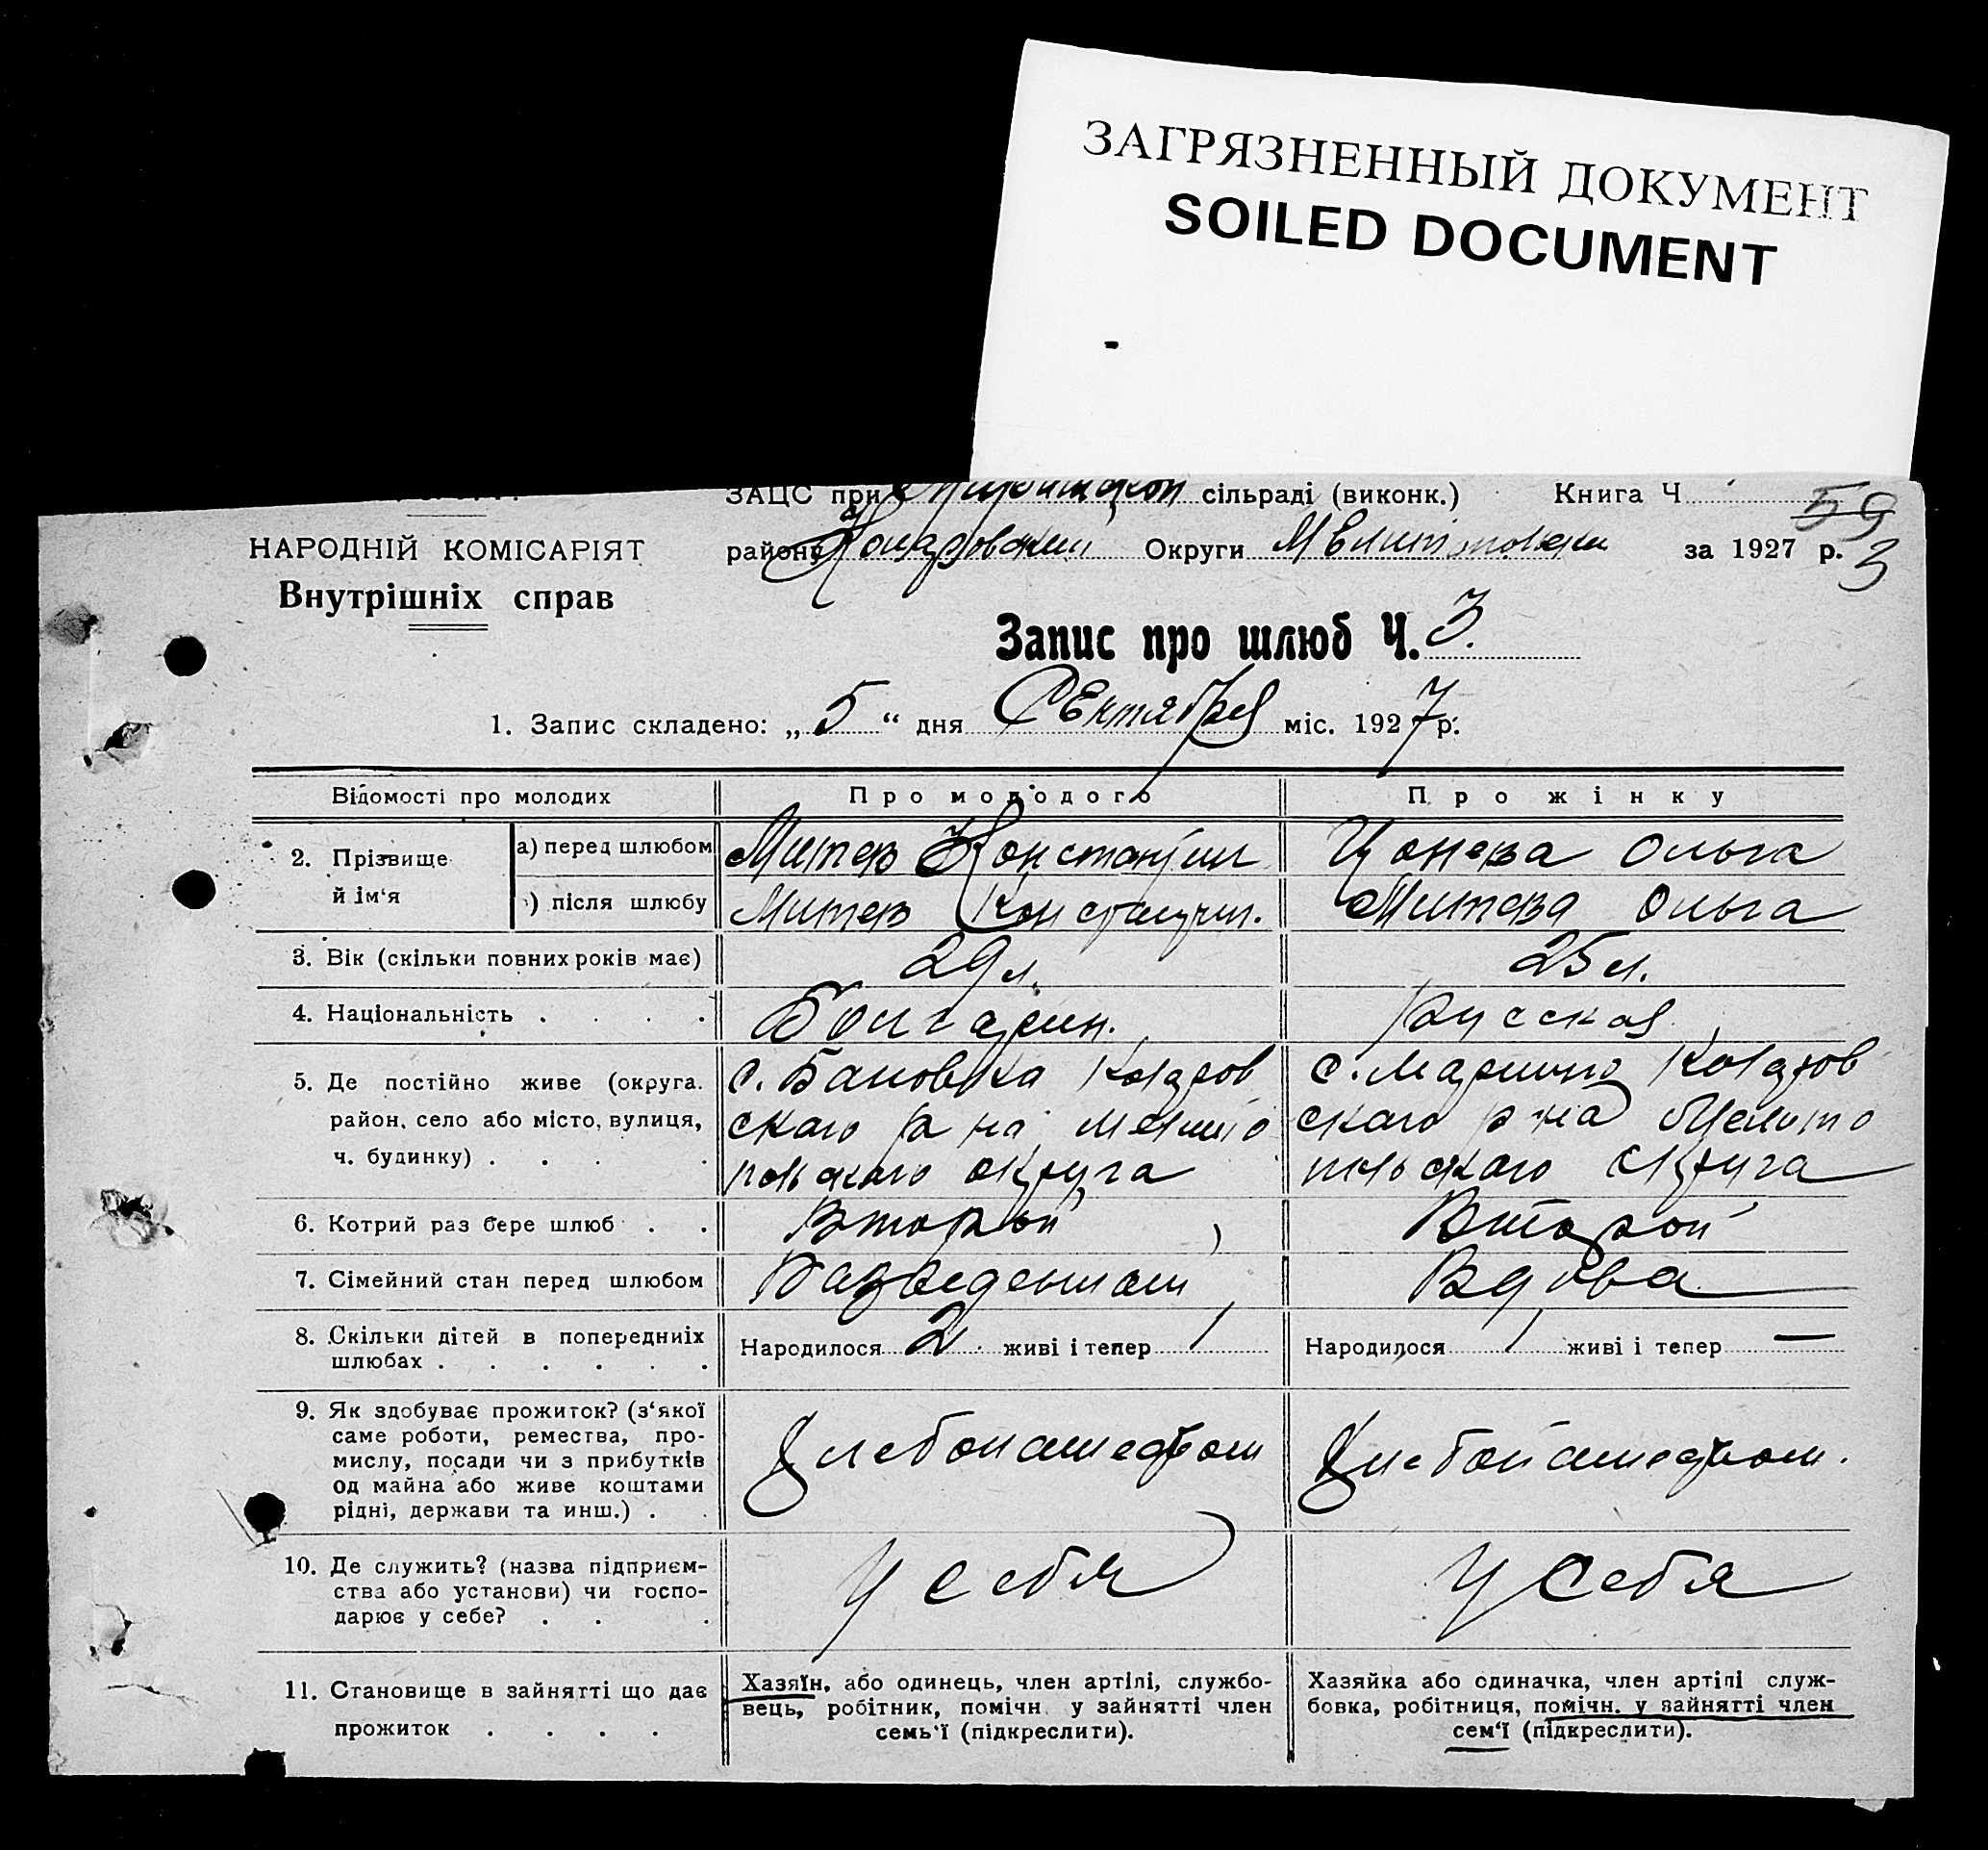 ЗАГРЯЗНЕННЫЙ ДОКУМЕНТ
SOILED DOCUMENT
ЗАЦС при сільраді (виконк.) Книга Ч
59
НАРОДНІЙ КОМІСАРІЯТ
Внутрішніх справ
району Округи за 1927 р.
3
Запис про шлюб Ч. 3.
1. Запис складено: „ 5 “ дня міс. 1927 р.
Відомості про молодих Про молодого Про жінку
2. Прізвище й ім‘я
а) перед шлюбом Митев Константин Цонева Ольга
) після шлюбу Митев Константин. Митева Ольга
3. Вік (скільки повних років має) 29 л. 25 л.
4. Національність . . . . Болгарин. Русская
5. Де постійно живе (округа. с. Бановка Колдров с. Марино Колдров
район, село або місто, вулиця, ского р на Мелито ского р на Мелито
ч. будинку) . . . . польского округа польского округа
6. Котрий раз бере шлюб . . Второй Второй
7. Сімейний стан перед шлюбом Вдова
8. Скільки дітей в попередниіх Народилося 2 живі і тепер 1 Народилося 1 живі і тепер —
шлюбах . . . . . .
9. Як здобуває прожиток? (з‘якої
саме роботи, ремества, про-
мислу, посади чи з прибутків
од майна або живе коштами
рідні, держави та инш.) . .
Хлебопашеством Хлебопашеством.
10. Де служить? (назва підприєм-
ства або установи) чи госпо-
дарює у себе? . . .
У себя У себя
11. Становище в зайнятті що дає
прожиток . . . .
Хазяїн, або одинець, член артілі, службо-
вець, робітник, помічн. у зайнятті член
семь‘ї (підкреслити).
Хазяйка або одиначка, член артілі служ-
бовка, робітниця, помічн. у зайнятті член
сем‘ї (підкреслити).